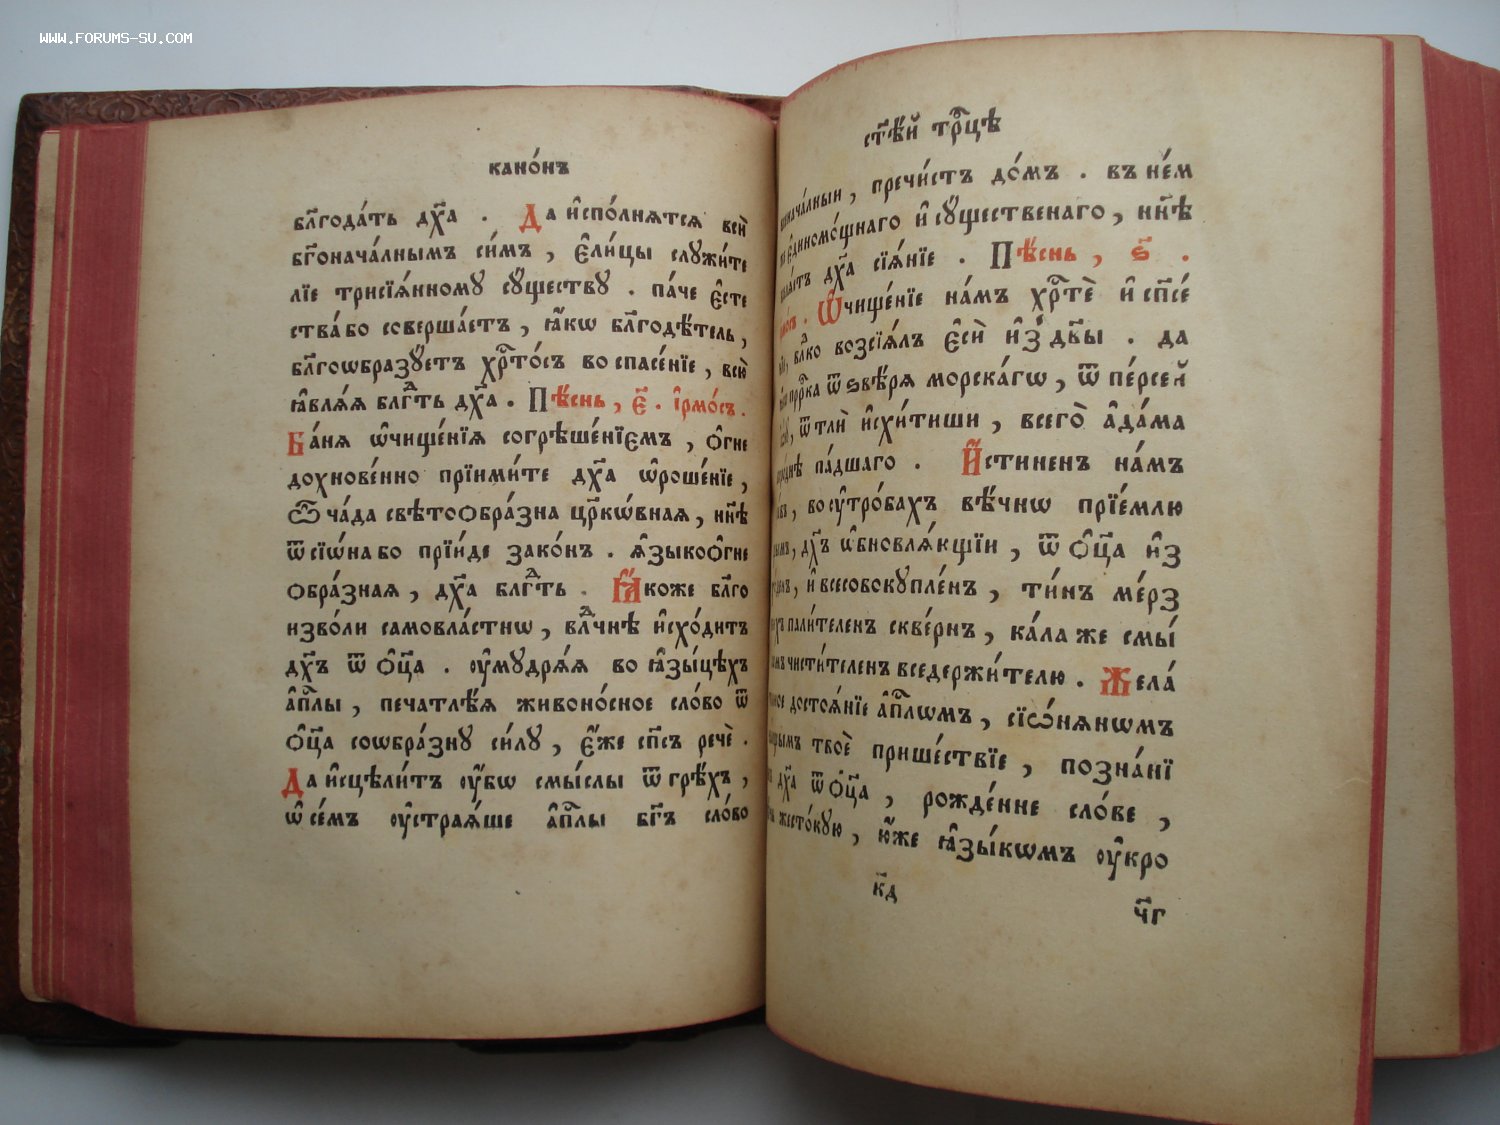 WWW.FORUMS-SU.COM
кано́нъ
бл҃года́ть дх҃а . Да и҆спо́лнѧтсѧ всѝ
бг҃онача́лнымъ си́мъ , є҆ли́цы слꙋжи́те
лїе трисїѧ́нномꙋ сꙋ́ществꙋ . па́че є҆сте
ства̀ бо соверша́етъ , ꙗ҆́кѡ бл҃годѣ́тель ,
бл҃гоѡбразꙋ́етъ хрⷭ҇то́съ во спасе́нїе , всю̀
ꙗ҆влѧ́ѧ блгⷣть дх҃а . Пѣ́снь , є҃ . і҆рмо́съ .
Ба́нѧ ѡ҆чище́нїѧ согрѣше́нїємъ , ѻ҆гне
дохнове́нно прїими́те дх҃а ѡ҆роше́нїе ,
ѽ ча́да свѣтоѻбра́зна цр҃ко́внаѧ , нн҃ѣ
ѿ сїѡ́на бо прїи́де зако́нъ . ѧ҆зыкоѻ҆гне
ѻбра́знаѧ , дх҃а блгⷣть . Ꙗ҆́коже бл҃го
изво́ли самовла́стнѡ , влⷣчнѣ и҆схо́дитъ
дх҃ъ ѿ ѻ҆ц҃а . ᲂу҆мꙋдрѧ́ѧ во ꙗ҆зы́цѣхъ
а҆пⷭ҇лы , печатлѣ́ѧ живоно́сное сло́во ѿ
ѻ҆ц҃а соѡбра́знꙋ си́лꙋ , є҆́же сп҃съ речѐ .
Да и҆сцѣли́тъ ᲂу҆́бѡ смы́слы ѿ грѣ́хъ ,
ѡ҆ се́мъ ᲂу҆страѧ́ше а҆пⷭ҇лы бг҃ъ сло́во
ст҃ѣ́й трⷪ҇цѣ
, пречи́стъ до́мъ . въ не́м
и҆ сꙋ́щественаго , нн҃ѣ
дх҃а сїѧ́нїе . Пѣ́снь , ѕ҃ .
Ѡ҆чище́нїе на́мъ хрⷭ҇тѐ и҆ сп҃се́
влⷣко возсїѧ́лъ є҆сѝ и҆з̾ дв҃ы . да
ѿ ѕвѣ́рѧ морска́гѡ , ѿ пе́рсей
ѿ тлѝ и҆схи́тиши , всего̀ а҆да́ма
па́дшаго . И҆́стиненъ на́мъ
, во ᲂу҆тро́бахъ вѣ́чнѡ прїе́млю
, дх҃ъ ѡ҆бновлѧ́кщїи , ѿ ѻ҆ц҃а и҆з
, и҆ всесовокꙋпле́нъ , ти́нъ ме́рз
пали́теленъ скве́рнъ , ка́ла же смы́
чисти́теленъ вседержи́телю . Жела́
достоѧ́нїе а҆пⷭ҇лѡмъ , сїѡ́нѧнѡмъ
твоѐ прише́ствїе , позна́нї
дх҃а ѿ ѻ҆ц҃а , рожде́нне сло́ве ,
жесто́кꙋю , ю҆́же ꙗ҆зы́кѡмъ ᲂу҆кро
к҃д
ч҃г